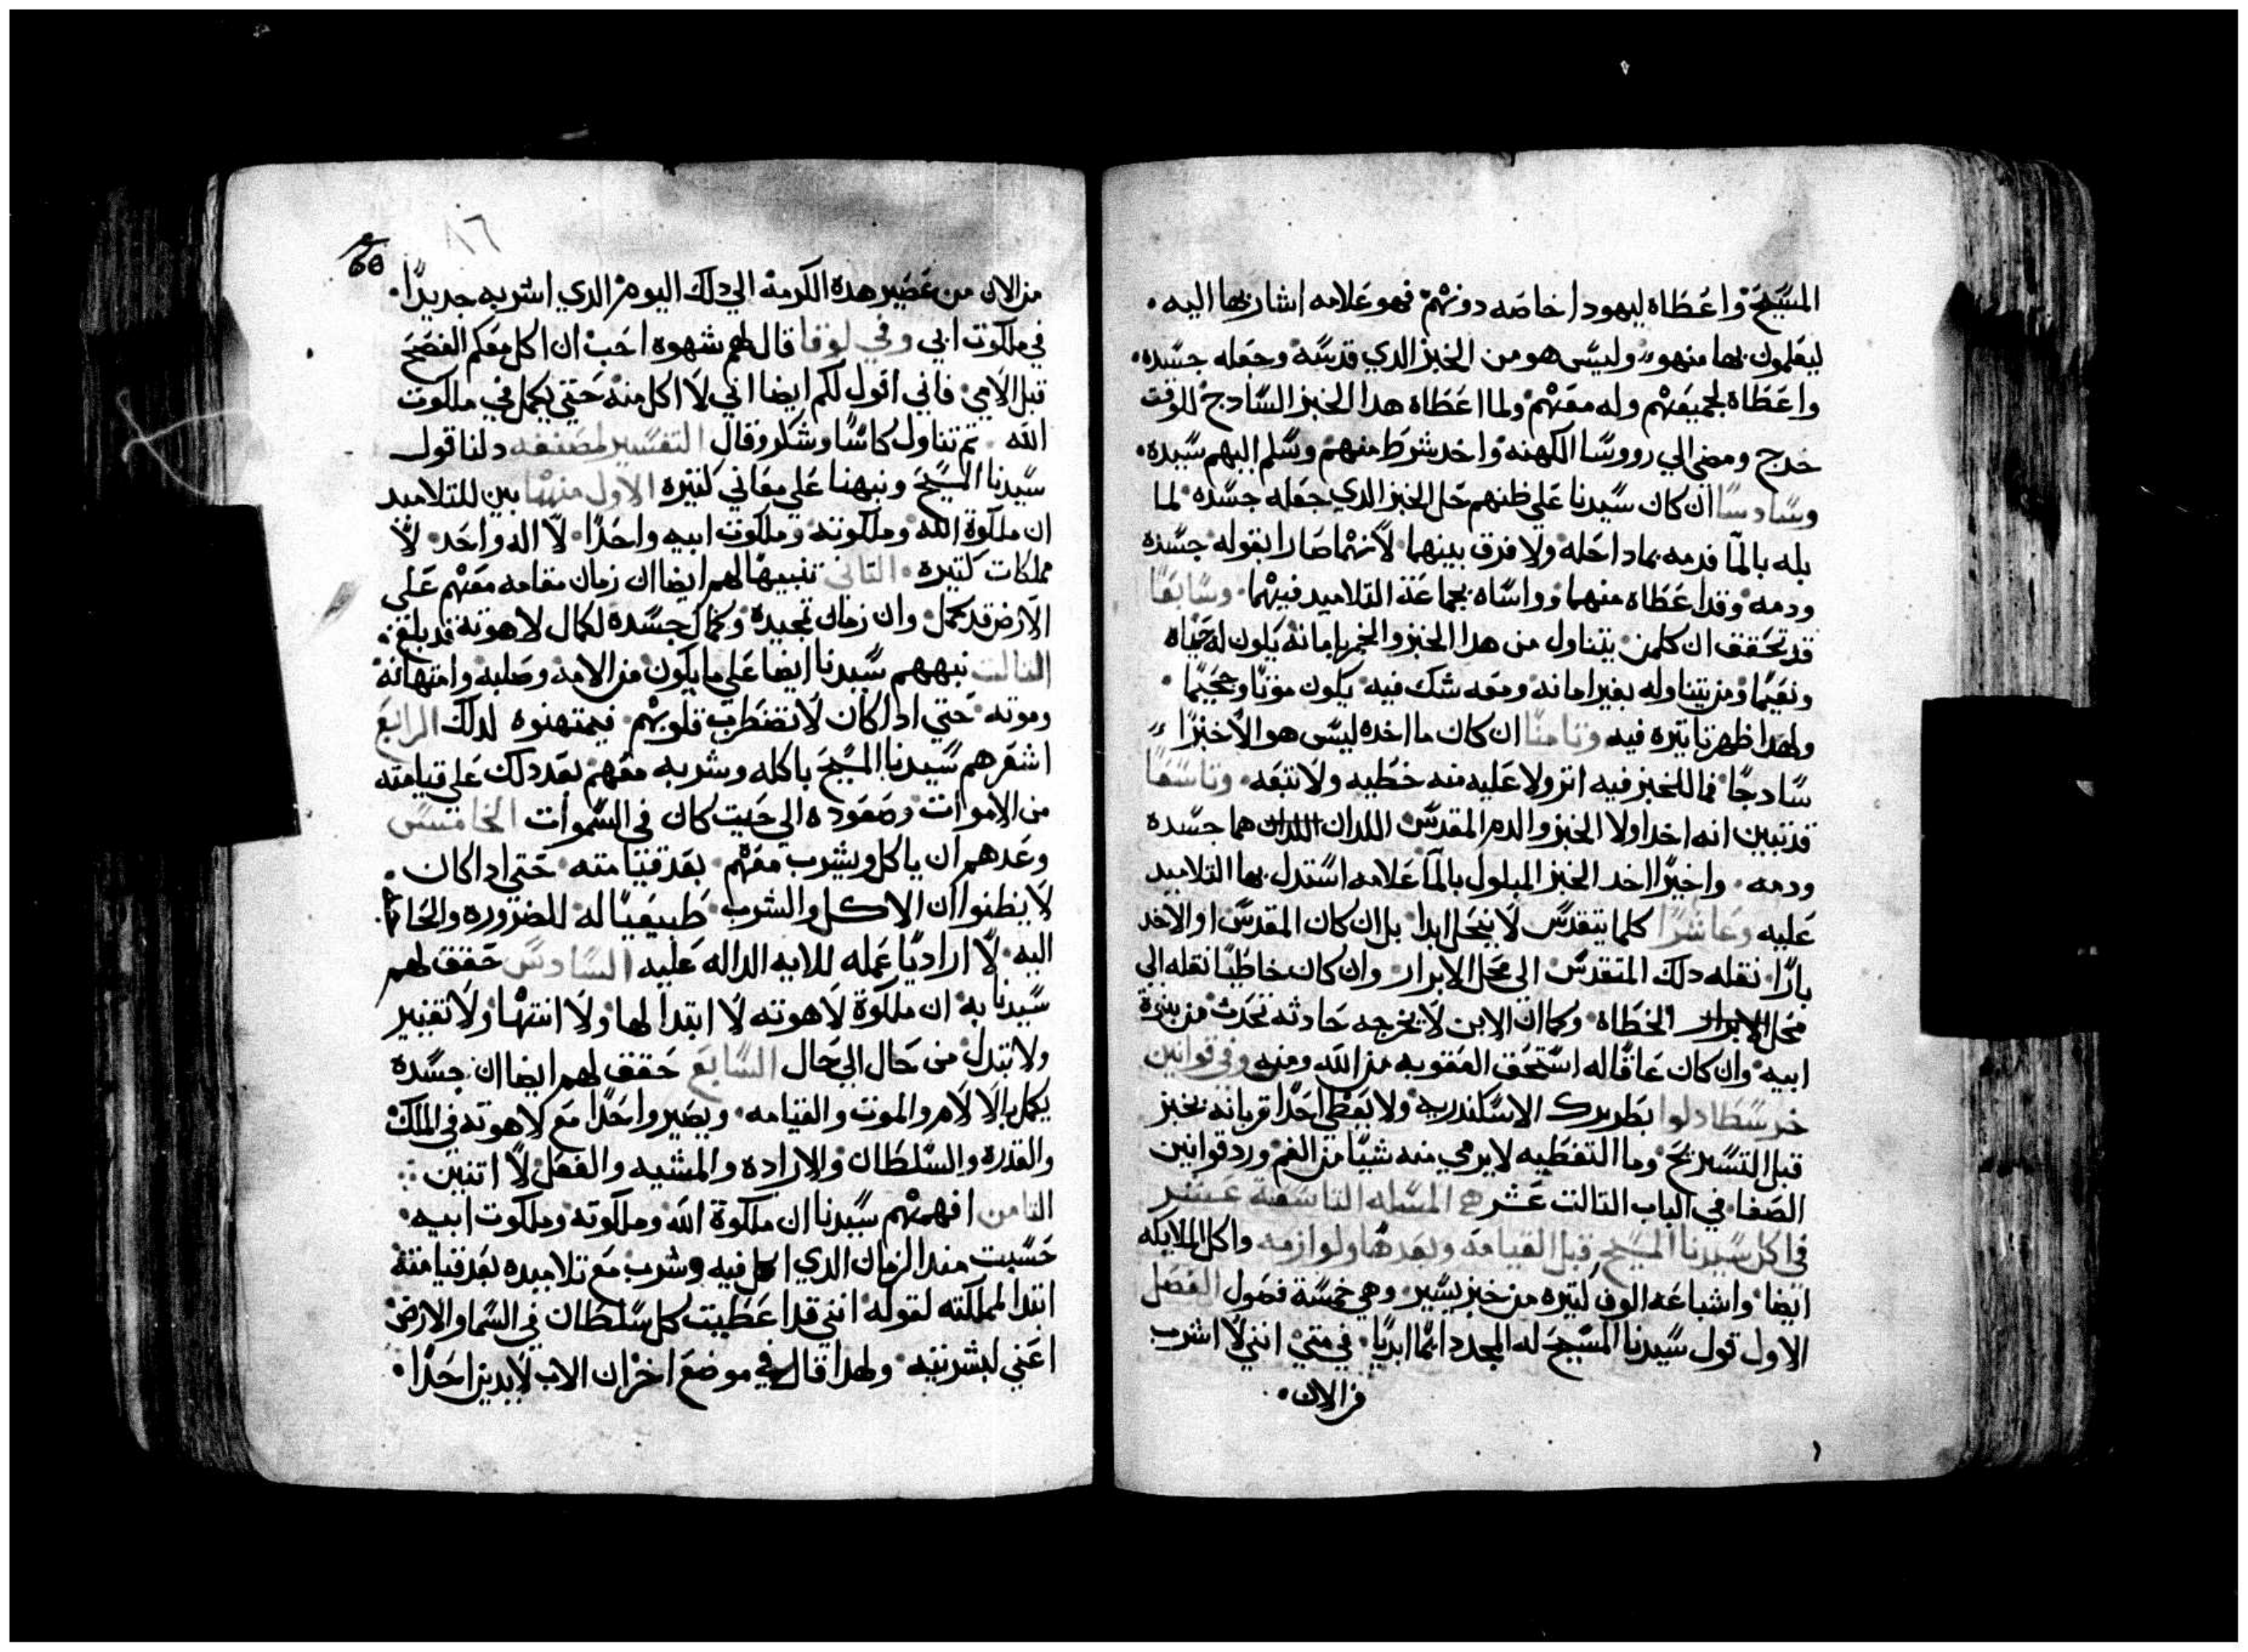 المسيح واعطاه ليهودا خاصه دونهم فهو علامه اشار بها اليه
ليعلمون بها منهو وليس هو من الخبز الدي قدسه وجعله جسده
واعطاه لجميعهم وله معهم ولما اعطاه هدا الخبز السادج للوقت
خرج ومضي الي رووسا الكهنه واخد شرط منهم وسلم اليهم سيده
وسادسا ان كان سيدنا علي ظنهم حل الخبز الدي جعله جسده لما
بله بالما فدمه بماداحله ولا فرق بينهما لانهما صارا بقوله جسده
ودمه وقد اعطاه منهما وواساه بجماعة التلاميد فيهما وسابعا
قد تحقق ان كلمن يتناول من هدا الخبز والخمر بامانه يكون له حياه
ونعيما ومن يتناوله بغير امانه ومعه شك فيه يكون موتا وجحيما
ولهدا ظهر تاتيره فيه وتامنا ان كان ما اخده ليس هو الا خبزا
سادجا فما للخبز فيه اتر ولا عليه منه خطيه ولا تبعه وتاسعا
قد تبين انه اخد اولا الخبز والدم المقدس اللدان اللدان هما جسده
ودمه واخيرا اخد الخبز المبلول بالما علامه استدل بها التلاميد
عليه وعاشرا كلما يتقدس لا ينحل ابدا بل ان كان المقدس او الاخد
بارا نقله دلك المتقدس الي محل الابرار وان كان خاطيا نقله الي
محل الابرار الخطاه وكما ان الابن لا يخرجه حادثه تحدت من بنوة
ابيه وان كان عاقا له استحق العقوبه من الله ومنه وفي قوانين
خرسطادلوا بطريرك الاسكندريه ولا يعطي احدا قربانه بخبز
قبل التسريح وما التغطيه لا يرمي منه شيا من الفم ورد قوانين
الصفا في الباب التالت عشر المسله التاسعة عشر
في اكل سيدنا المسيح قبل القيامه وبعدها ولوازمه واكل الملايكه
ايضا واشباعه الوف كتيره من خبز يسير وهي خمسة فصول الفصل
الاول قول سيدنا المسيح له المجد دايما ابديا في متي انني لا اشرب
من الالان
٨٦
60
من الان من عصير هده الكرمة الي دلك اليوم الدي اشربه جديدا
في ملكوت ابي وفي لوقا قال لهم شهوه احب ان اكل معكم الفصح
قبل الامي فاني اقول لكم ايضا اني لا اكل منه حتي يكمل في ملكوت
الله تم تناول كاسا وشكر وقال التفسير لمصنفه دلنا قول
سيدنا المسيح ونبهنا علي معاني كتيره الاول منها بين للتلاميد
ان ملكوة الله وملكوته وملكوت ابيه واحدا لا اله واحد لا
مملكات كتيره التاني تنبيها لهم ايضا ان زمان مقامه معهم علي
الارض قد كمل وان زمان تمجيده وكمال جسده لكمال لاهوته قد بلغ
التالت نبههم سيدنا ايضا علي ما يكون من الامه وصلبه وامتهانه
وموته حتي ادا كان لا تضطرب قلوبهم فيمتهنوه لدلك الرابع
اشعرهم سيدنا المسيح باكله وشربه معهم بعد دلك علي قيامته
من الاموات وصعوده الي حيت كان في السموات الخامس
وعدهم ان ياكل ويشرب معهم بعد قيامته حتي ادا كان
لا يظنوا ان الاكل والشرب طبيعيا له للضروره والحاجة
اليه لا اراديا عمله للايه الداله عليه السادس حقق لهم
سيدنا به ان ملكوة لاهوته لا ابتدا لها ولا انتها ولا تغيير
ولا تبدل من حال الي حال السابع حقق لهم ايضا ان جسده
يكمل بالالام والموت والقيامه ويصير واحدا مع لاهوته في الملك
والقدره والسلطان والاراده والمشيه والفعل لا اتنين
التامن افهمهم سيدنا ان ملكوة الله وملكوته وملكوت ابيه
حسبت مند الزمان الدي اكل فيه وشرب مع تلاميده بعد قيامته
ابتدا لمملكته لقوله انني قد اعطيت كل سلطان في السما والارض
اعني لبشريته ولهدا قال في موضع اخر ان الاب لا يدين احدا